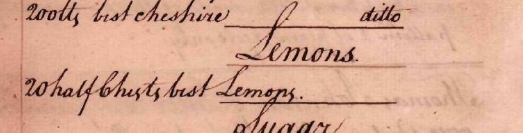 200lb, best cheshire ditto
Lemons.
20 half Chests best Lemons.
Sugar